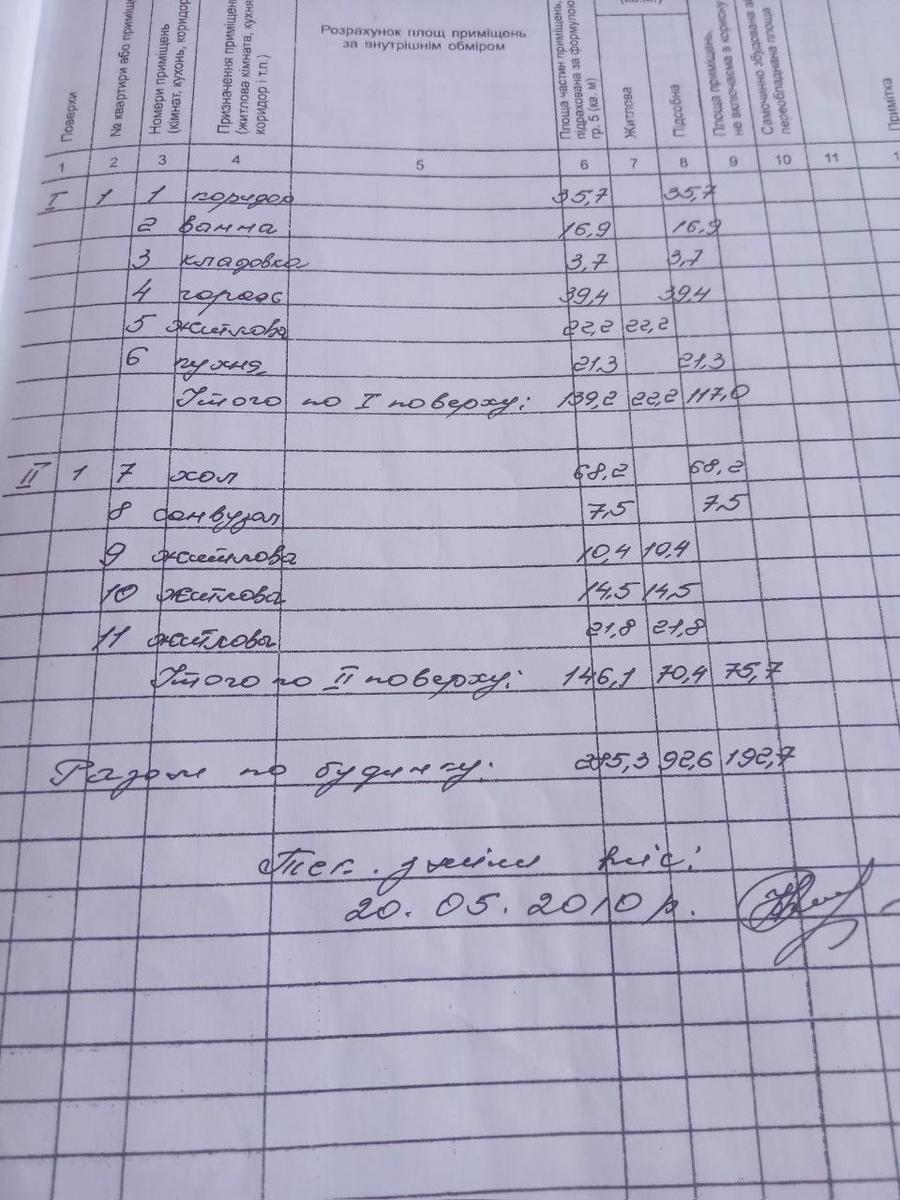 Поверхи
№ квартири або приміще
Номери приміщень
(кімнат, кухонь, коридор
Призначення приміщен
(житлова кімната, кухня
коридор і т.п.)
Розрахунок площ приміщень
за внутрішнім обміром
Площа частин приміщень,
підрахована за формулою
гр. 5 (кв. м)
Житлова
Підсобна
Площа приміщень,
не включаєма в корисну
Самочинно збудована а
переобладнана площа
Примітка
1 2 3 4 5 6 7 8 9 10 11 1
I 1 1 коридор 35,7 35,7
2 ванна 16,9 16,9
3 кладовка 3,7 3,7
4 гараж 39,4 39,4
5 житлова 22,2 22,2
6 кухня 21,3 21,3
Ітого по I поверху: 139,2 22,2 117,0
II 1 7 хол 68,2 68,2
8 санвузол 7,5 7,5
9 житлова 10,4 10,4
10 житлова 14,5 14,5
11 житлова 21,8 21,8
Ітого по II поверху: 146,1 70,4 75,7
Разом по будинку: 285,3 92,6 192,7
Тех. зміни вніс:
20.05.2010 р.